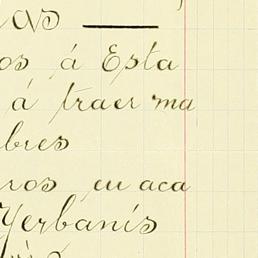 as
os á Esta
á traer ma
bres
ros en aca
Yerbanís